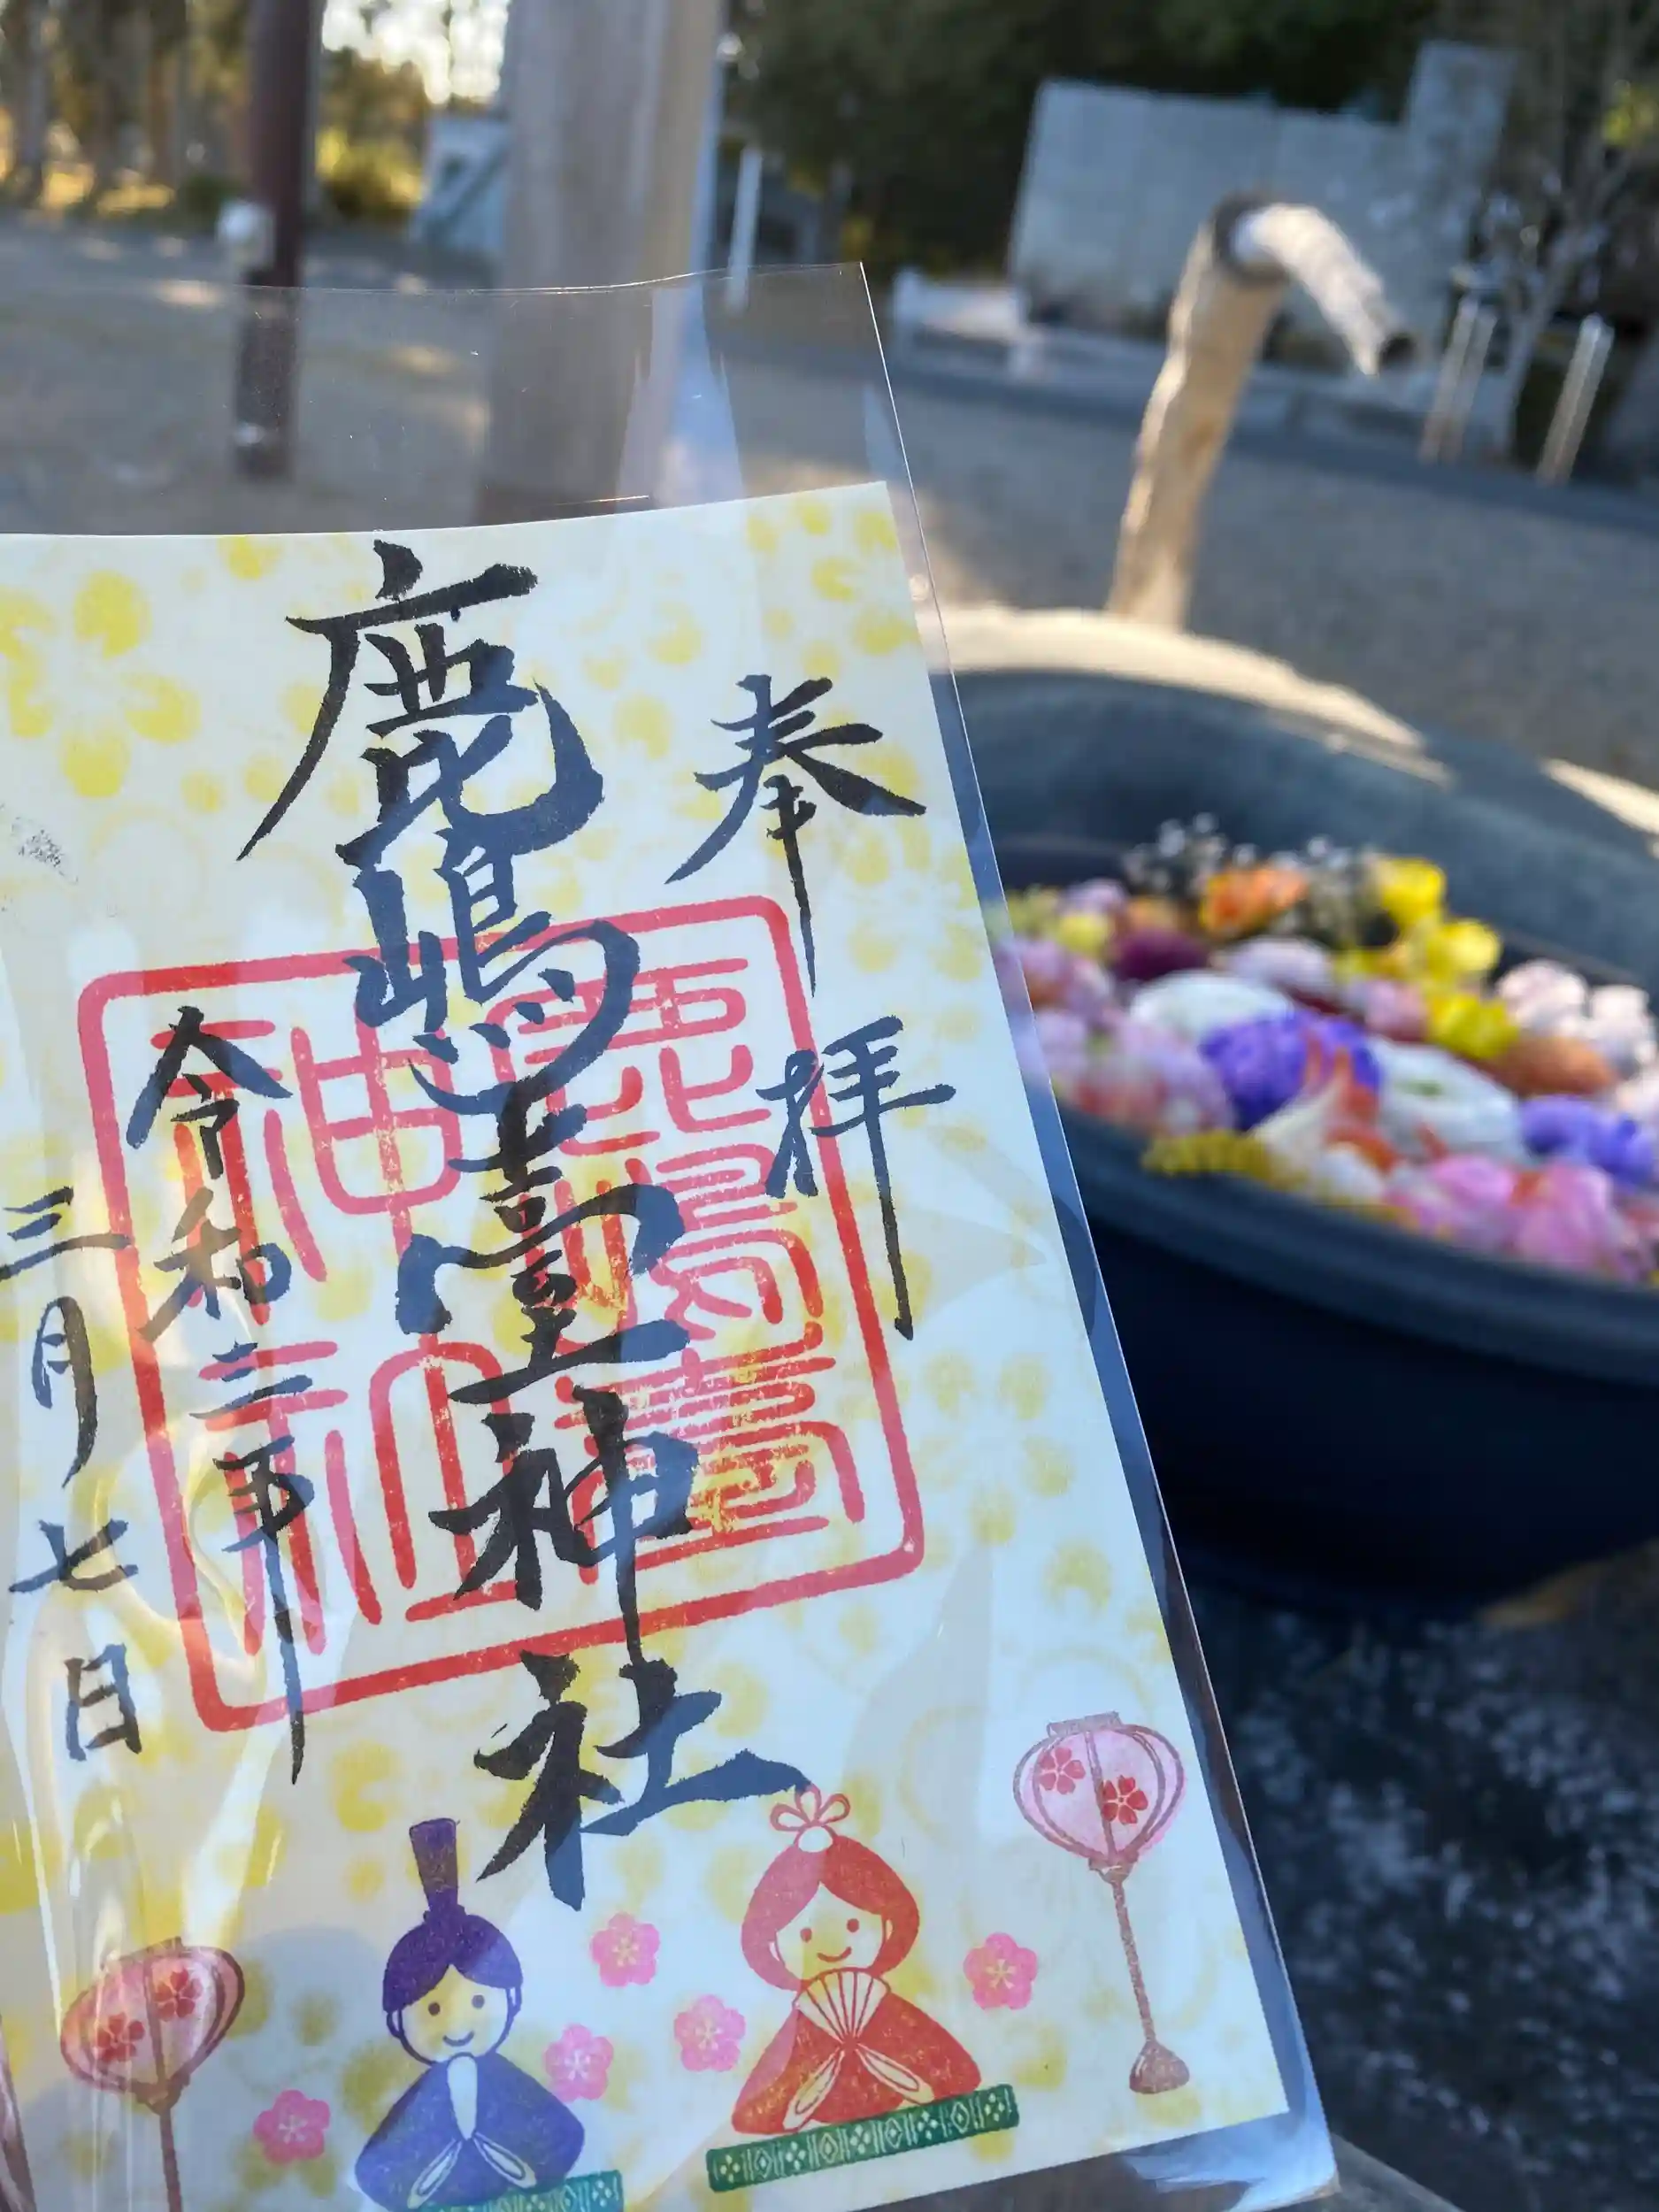 奉拝
鹿嶋臺神社
令和三年
三月七日
鹿島臺
神社